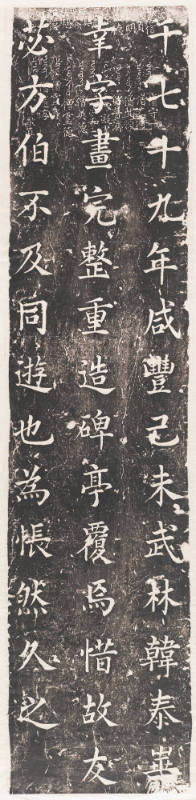 十七十九年咸豐己未武林韓泰華
幸字畫完整重造碑亭覆焉惜故友
苾方伯不及同遊也為悵然久之